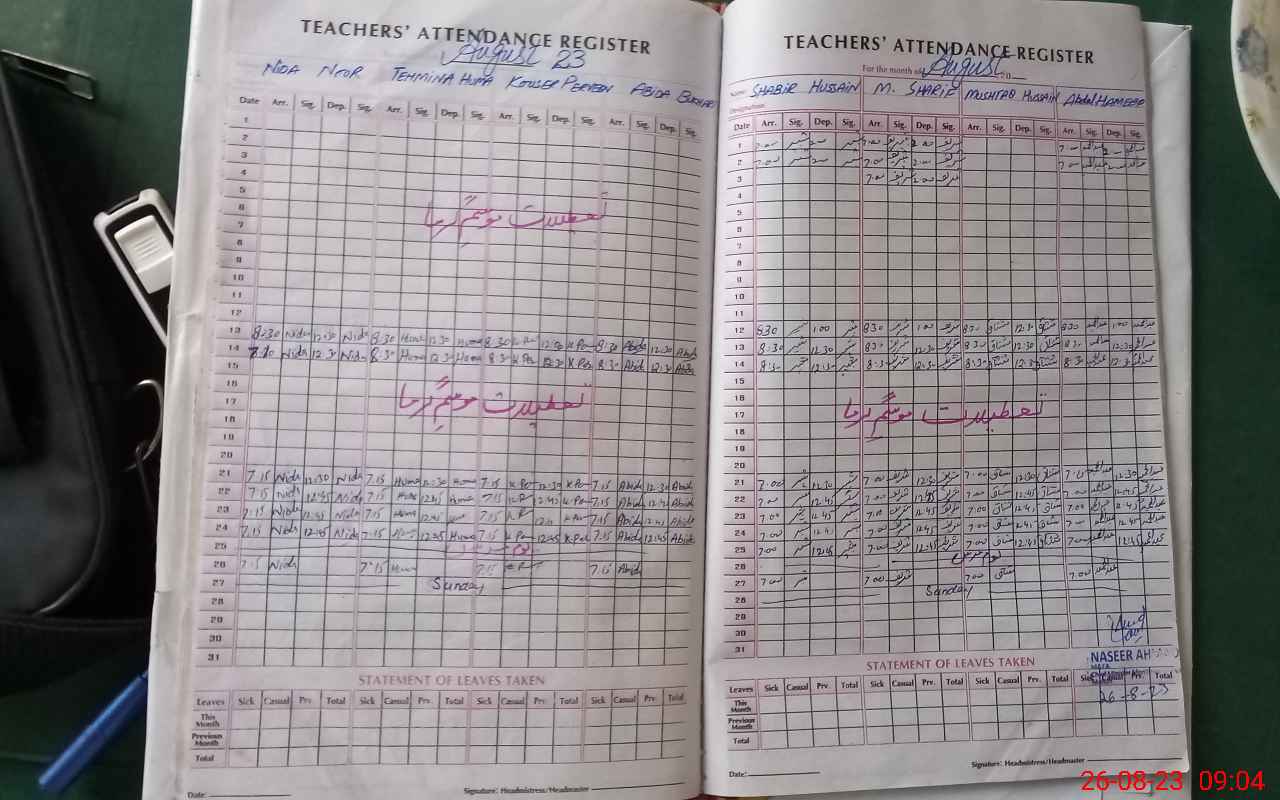 TEACHERS' ATTENDANCE REGISTER
August 23
NIDA NOOR TEHMINA HUMA KOUSER PERVEEN ABIDA BUKHARI
Date Arr. Sig. Dep. Sig. Arr. Sig. Dep. Sig. Arr. Sig. Dep. Sig. Arr. Sig. Dep. Sig.
1
2
3
4
5
6 تعطیلات موسم گرما
7
8
9
10
11
12
13 8:30 Nida 12:30 Nida 8:30 Huma 12:30 Huma 8:30 K Per 12:30 K Per 8:30 Abida 12:30 Abida
14 8:30 Nida 12:30 Nida 8:30 Huma 12:30 Huma 8:30 K Per 12:30 K Per 8:30 Abida 12:30 Abida
15
16
17 تعطیلات موسم گرما
18
19
20
21 7.15 Nida 12:30 Nida 7.15 Huma 12:30 Huma 7.15 K Per 12:30 K Per 7.15 Abida 12:30 Abida
22 7.15 Nida 12:45 Nida 7.15 Huma 12:45 Huma 7:15 K P 12:45 K Per 7.15 Abida 12:45 Abida
23 7:15 Nida 12:45 Nida 7.15 Huma 12:45 7.15 K P K Per 7.15 Abida 12:45 Abida
24 7.15 Nida 12:45 Nida 7.15 Huma 12:45 Huma 7.15 K Per 12:45 K Per 7.15 Abida 12:45 Abida
25
26 7.15 Nida 7.15 Huma 7.15 7.15 Abida
27 Sunday
28
29
30
31
STATEMENT OF LEAVES TAKEN
Leaves Sick Casual Prv. Total Sick Casual Prv. Total Sick Casual Prv. Total Sick Casual Prv. Total
This Month
Previous Month
Total
Date: Signature: Headmistress/Headmaster
TEACHERS' ATTENDANCE REGISTER
For the month of August 20
Name: SHABIR HUSSAIN M. SHARIF MUSHTAQ HUSSAIN Abdul HAMEED
Designation:
Date Arr. Sig. Dep. Sig. Arr. Sig. Dep. Sig. Arr. Sig. Dep. Sig. Arr. Sig. Dep. Sig.
1 7.00 7.00 شریف 2.00 شریف 7.00
2 7.00 7.00 شریف 2.00 شریف 7.00
3 7.00 شریف 2.00 شریف
4
5
6
7
8
9
10
11
12 830 100 830 شریف 100 شریف 830 مشتاق 12:30 مشتاق 830 100
13 8:30 12:30 8:30 شریف 12:30 شریف 8:30 مشتاق 12:30 مشتاق 8:30 12:30
14 8:30 12:30 8:30 شریف 12:30 شریف 8:30 مشتاق 12:30 مشتاق 8:30 12:30
15
16
17 تعطیلات موسم گرما
18
19
20
21 7.00 12:30 7.00 شریف 12:30 شریف 7.00 مشتاق 12:30 مشتاق 12:30
22 7.00 12:45 7.00 شریف 12:45 شریف 7.00 مشتاق 12:45 مشتاق 7.00 12:45
23 7.00 12.45 7.00 شریف 12.45 شریف 7.00 مشتاق 12.45 مشتاق 7.00 12.45
24 7.00 12.45 7.00 شریف 12.45 شریف 7.00 مشتاق 12.45 مشتاق 7.00 12.45
25 7.00 12:45 7.00 شریف 12:45 شریف 7.00 مشتاق 12:45 مشتاق 7.00 12:45
26
27 7.00 7.00 شریف 7.00 مشتاق 7.00
28 Sunday
29
30
31
STATEMENT OF LEAVES TAKEN
NASEER AH
Leaves Sick Casual Prv. Total Sick Casual Prv. Total Sick Casual Prv. Total Sick Casual Prv. Total
This Month
26-8-23
Previous Month
Total
Date: Signature: Headmistress/Headmaster
26-08-23 09:04